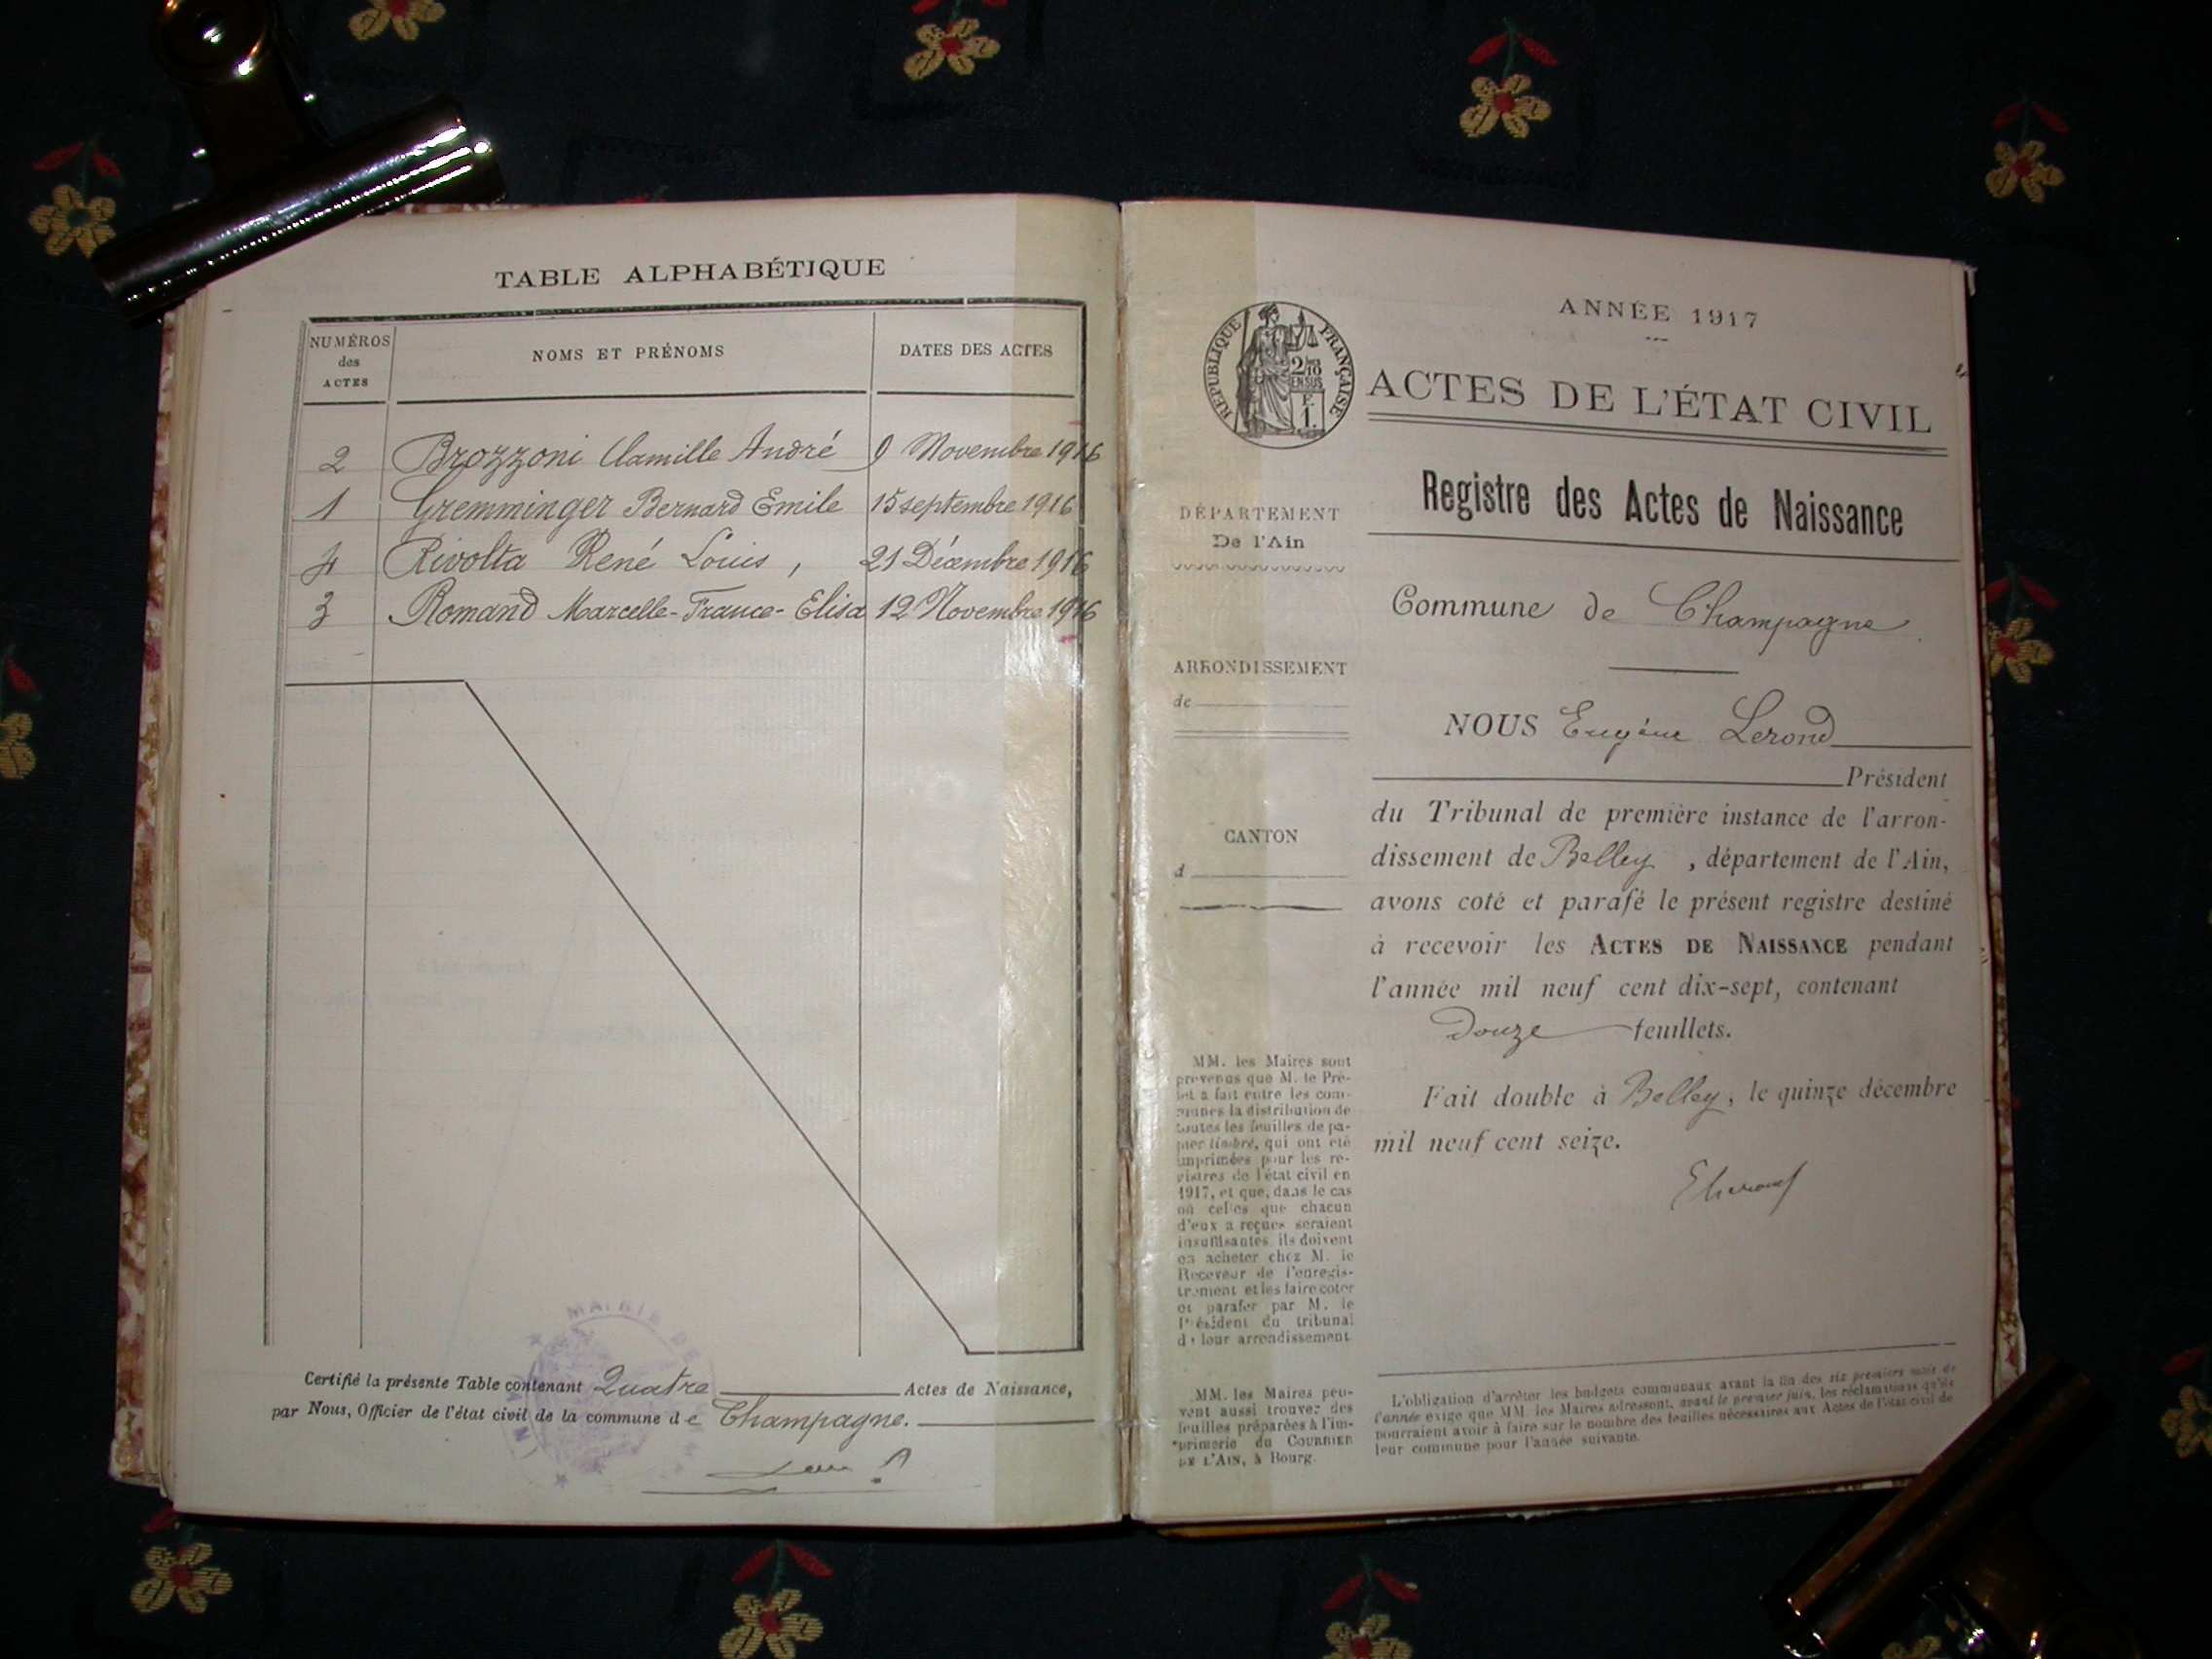 TABLE ALPHABÉTIQUE
NUMÉROS
des
ACTES
NOMS ET PRÉNOMS
DATES DES ACTES
2 Brozzoni Camille André 9 Novembre 1916
1 Gremminger Bernard Emile 15 septembre 1916
4 Rivolta René Louis, 21 Décembre 1916
3 Romand Marcelle-France-Elisa 12 Novembre 1916
Certifié la présente Table contenant Quatre Actes de Naissance,
par Nous, Officier de l'état civil de la commune de Champagne.
MAIRIE DE
ANNÉE 1917
RÉPUBLIQUE FRANÇAISE
2/10
EN SUS
F.
1.
ACTES DE L'ÉTAT CIVIL
Registre des Actes de Naissance
DÉPARTEMENT
De l'Ain
ARRONDISSEMENT
de
CANTON
d
Commune de Champagne
NOUS Eugène Lerond
Président
du Tribunal de première instance de l'arron-
dissement de Belley, département de l'Ain,
avons coté et parafé le présent registre destiné
à recevoir les ACTES DE NAISSANCE pendant
l'année mil neuf cent dix-sept, contenant
Douze feuillets.
Fait double à Belley, le quinze décembre
mil neuf cent seize.
MM. les Maires sont
prévenus que M. le Pré-
fet a fait entre les com-
munes la distribution de
toutes les feuilles de pa-
pier timbré, qui ont été
imprimées pour les re-
gistres de l'état civil en
1917, et que, dans le cas
où celles que chacun
d'eux a reçues seraient
insuffisantes, ils doivent
en acheter chez M. le
Receveur de l'enregis-
trement et les faire coter
et parafer par M. le
Président du tribunal
de leur arrondissement
MM. les Maires peu-
vent aussi trouver des
feuilles préparées à l'im-
primerie du COURRIER
DE L'AIN, à Bourg.
L'obligation d'arrêter les budgets communaux avant la fin des six premiers mois de
l'année exige que MM. les Maires adressent, avant le premier juin, les réclamations qu'ils
pourraient avoir à faire sur le nombre des feuilles nécessaires aux Actes de l'état civil de
leur commune pour l'année suivante.